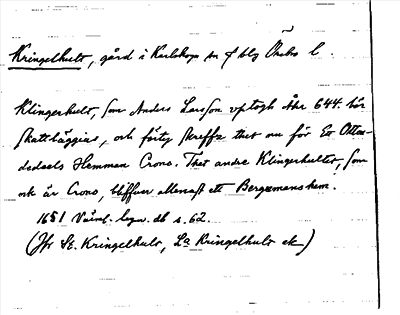 Kringelhult, gård i Karlskoga sn o blg Örebro l.
Klingerhult, som Anders Larsson uptogh åhr 644. bör
skattläggias, och förty skreffz thet nu för Ett Otton-
dedeels Hemman Crono. Thet andre Klingerhultet, som
ok är Crono, bliffuer allenast ett Bergzmanshem.
1651 Värml. legn. db s. 62.
(Jfr St. Kringelhult, La Kringelhult etc)